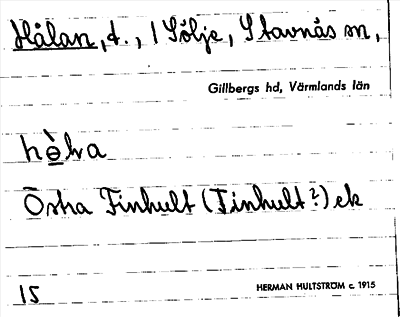 Hålan, t., i Sölje, Stavnäs sn,
Gillbergs hd, Värmlands län
hòla
Östra Finhult (Tinhult?) ek
15
HERMAN HULTSTRÖM c. 1915